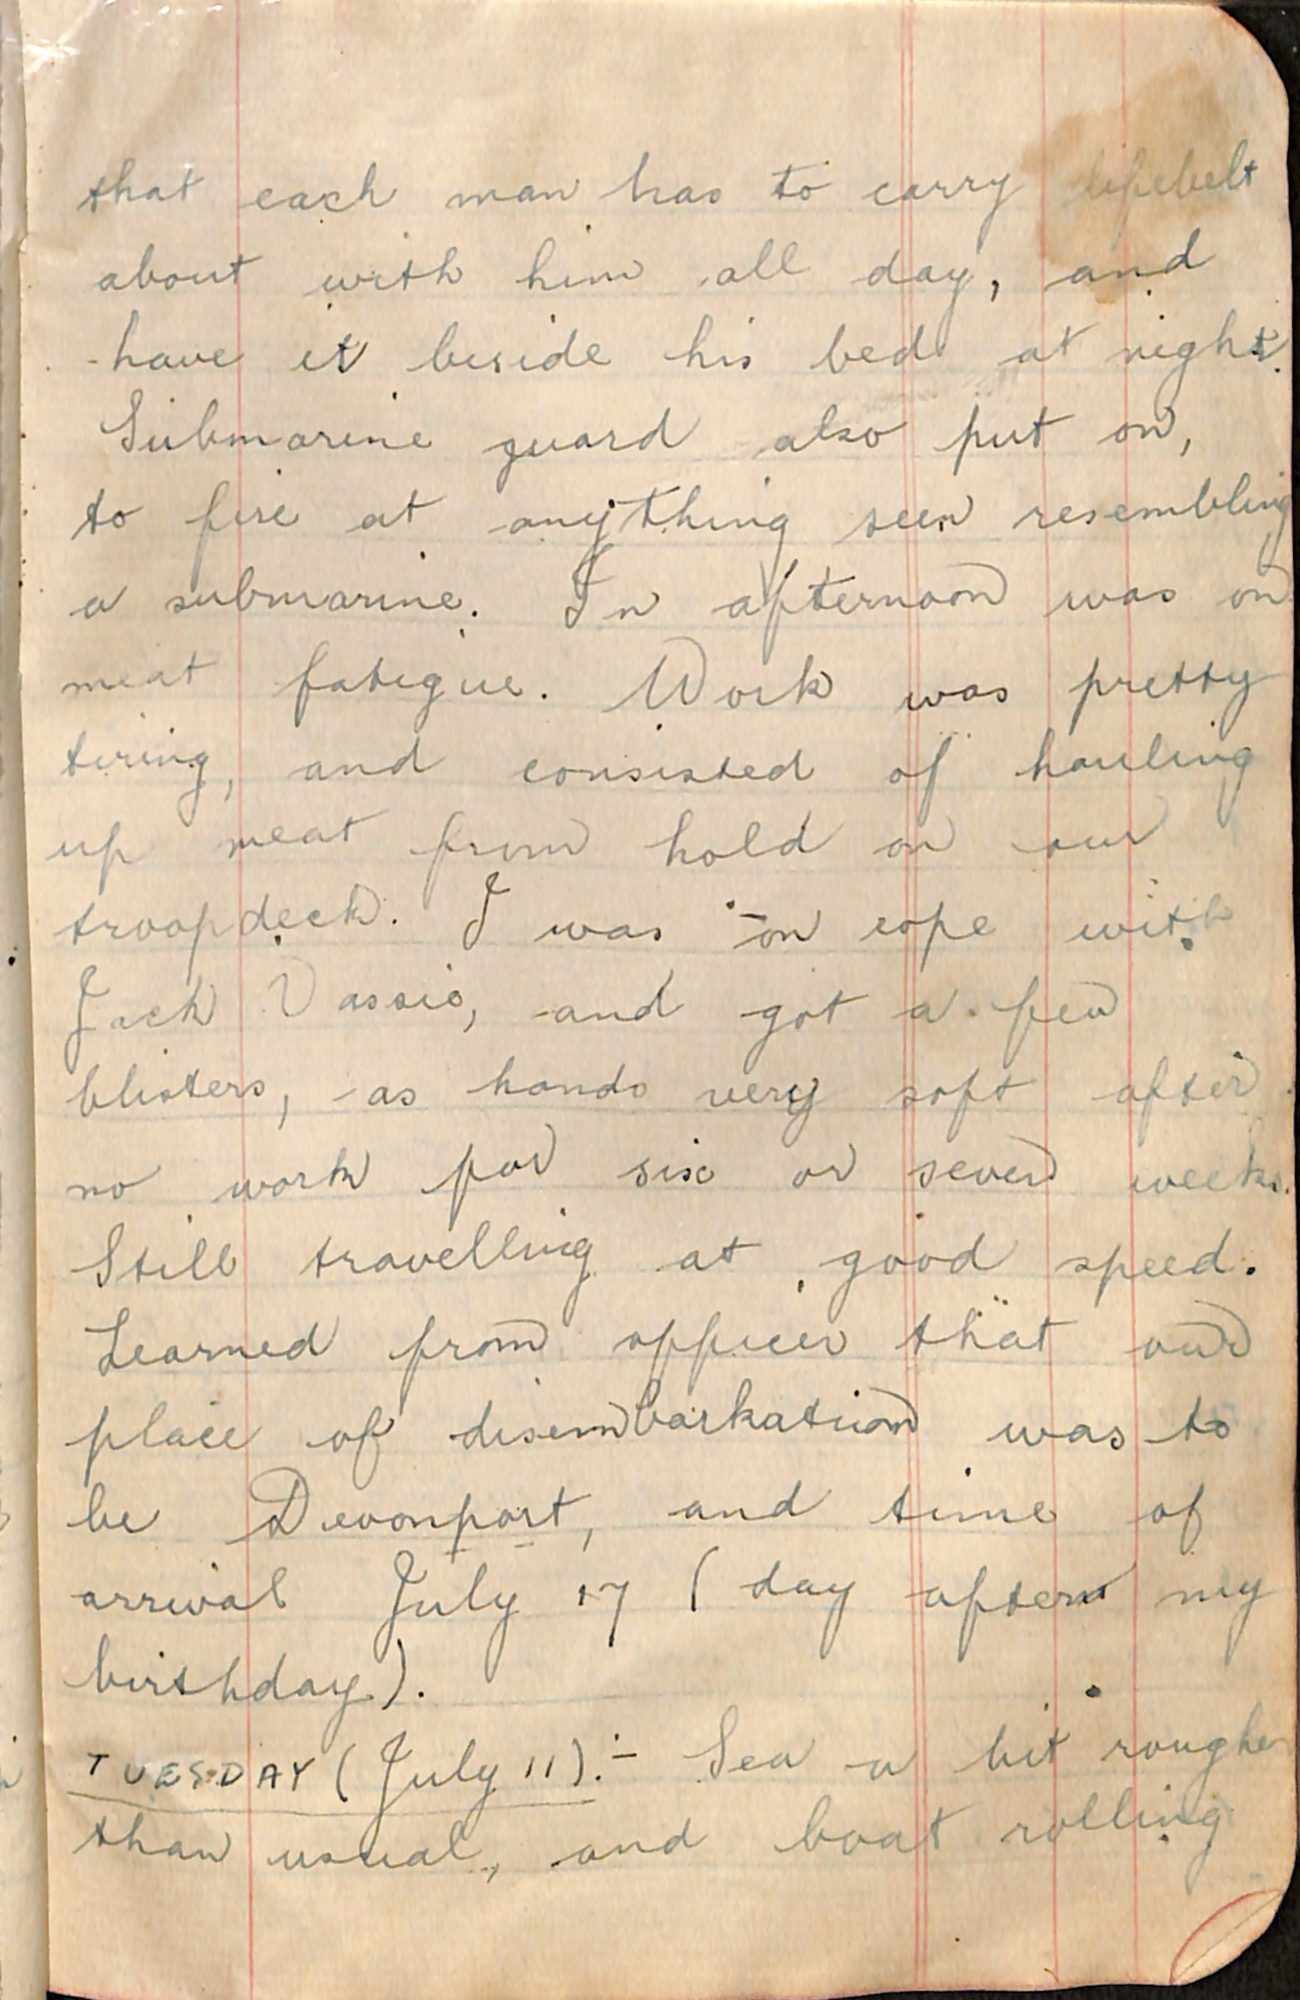 that each man has to carry lifebelt
about with him all day, and
have it beside his bed at night.
Submarine guard also put on,
to fire at anything seen resembling
a submarine. In afternoon was on
meat fatigue. Work was pretty
tiring, and consisted of hauling
up meat from hold on our
troopdeck. I was on rope with
Jack Vassie, and got a few
blisters, as hands very soft after
no work for six or seven weeks.
Still travelling at good speed.
Learned from officer that our
place of disembarkation was to
be Devonport, and time of
arrival July 17 (day after my
birthday).
TUESDAY (July 11):- Sea a bit rougher
than usual, and boat rolling